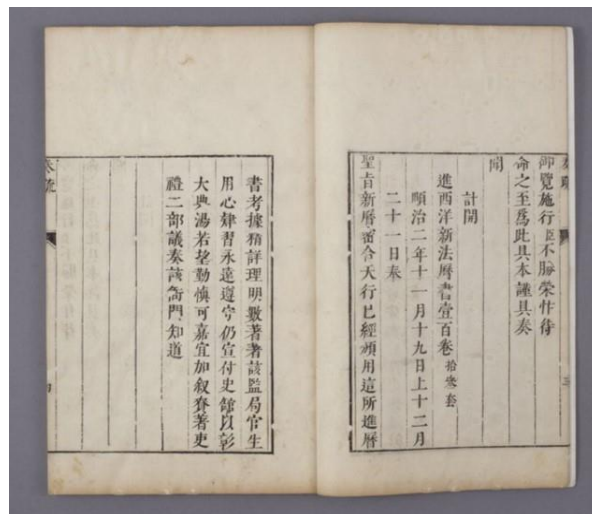 奏疏
御覽施行臣不勝榮忭待
命之至爲此具本謹具奏
聞
計開
進西洋新法曆書壹百卷 拾叁套
順治二年十一月十九日上十二月
二十一日奉
聖旨新曆密合天行已經頒用這所進曆
三
書考據精詳理明數著著該監局官生
用心肄習永遠遵守仍宣付史館以彰
大典湯若望勤慎可嘉宜加敘賚著吏
禮二部議奏該衙門知道
奏疏
四